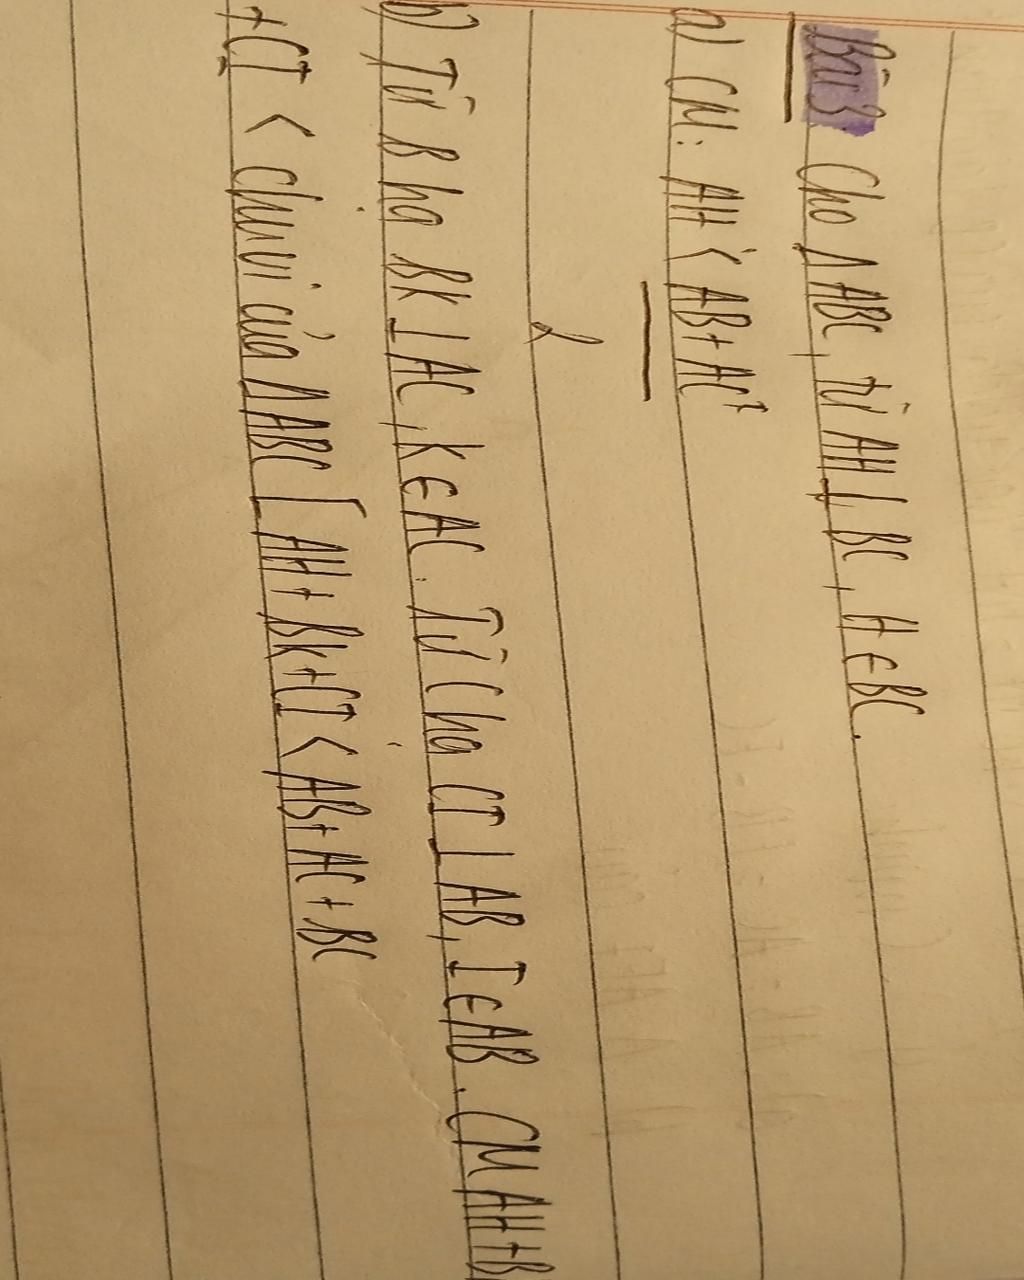 Bài 3: Cho ΔABC, từ AH ⊥ BC, H ∈ BC.
a) CM: AH < AB + AC
2
b) Từ B hạ BK ⊥ AC, K ∈ AC. Từ C hạ CI ⊥ AB, I ∈ AB. CM AH + B
+ CI < chu vi của ΔABC [AH + BK + CI < AB + AC + BC